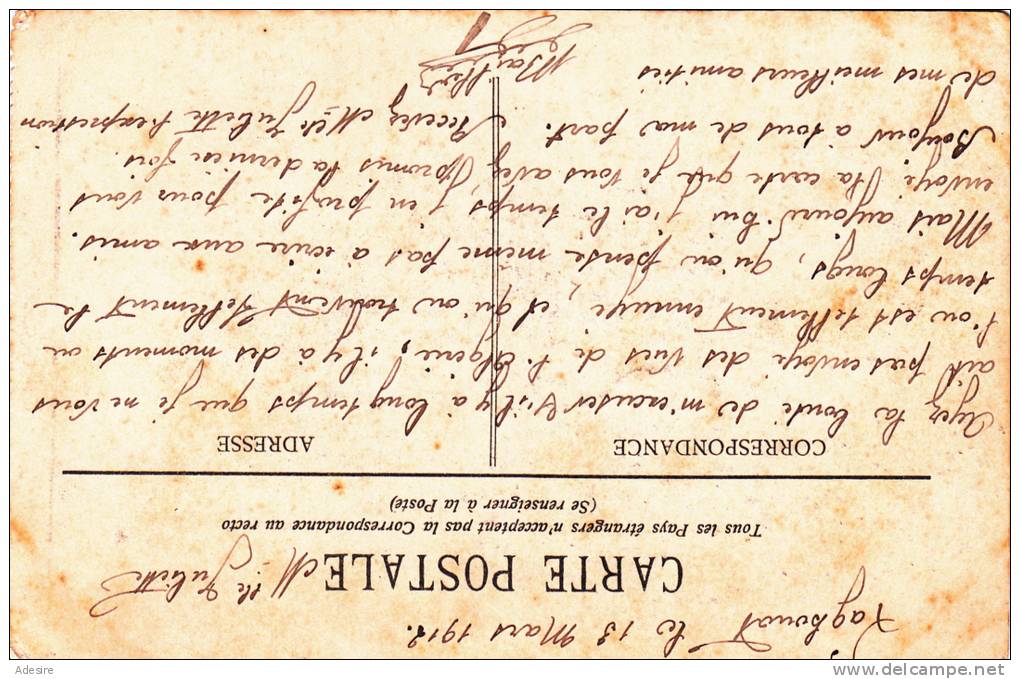 Laghouat le 13 Mars 1912.
CARTE POSTALE
Mlle Juliette
Tous les Pays étrangers n'acceptent pas la Correspondance au recto
(Se renseigner à la Poste)
CORRESPONDANCE
ADRESSE
Ayez la bonté de m'excuser s'il y a longtemps que je ne vous
ait pas envoyé des vues de l'Algérie, il y a des moments ou
l'on est tellement ennuyé, et qu'on trouvent tellement le
temps longs, qu'on pense même pas a écrire aux amis.
Mais aujourd'hui j'ai le temps j'en profite pour vous
envoyé la carte que je vous avez promis la derniere fois.
Bonjour a tous de ma part. Recevez Mlle Juliette l'expression
de mes meilleurs amitiés
Adesire
www.delcampe.net